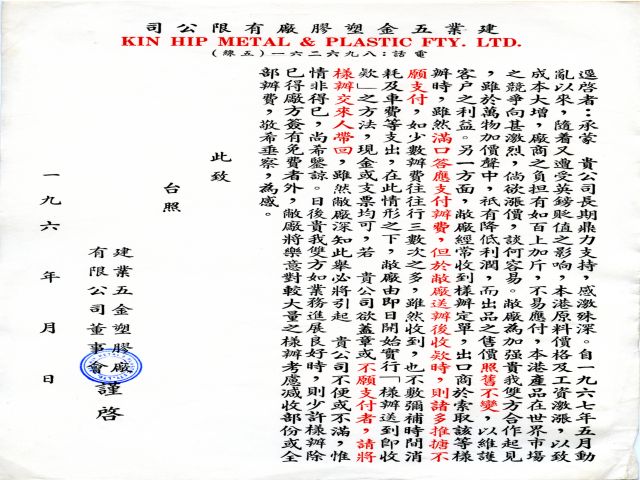 建業五金塑膠廠有限公司
KIN HIP METAL & PLASTIC FTY. LTD.
電話:八九六二六一(五線)
逕啓者:承蒙 貴公司長期鼎力支持,感激殊深。自一九六七年五月動
亂以來,隨着又遭受英鎊貶值之影响,本港原料價格及工資激漲,以致
成本大增,廠商之負担有如百上加斤,不易應付,本港產品在世界市場
之競爭向甚激烈,倘欲漲價,談何容易。敝廠為加强貴我双方合作起見
,雖於萬物加價聲中,祇有降低利潤,而出品之售價照舊不變,以維護
客户之利益。另一方面,敝廠經常收到樣辦定單,出口商於索取該等樣
辦時,雖然滿口答應支付辦費,但於敝廠送辦後收欵時,則諸多推搪不
願支付,如少數辦費往往行三數次之多,雖然收到,也不數弥補時間消
耗及車費等支出,在此情形之下,敝廠由即日開始實行「樣辦送到即收
欵」之方法,現金或支票均可,若 貴公司欲蓋章或不願支付者,請將
樣辦交來人帶回,雖然敝廠深知此舉必將引起 貴公司不便或不滿,惟
情非得已,尚希鑒諒。日後貴我双方如業務進展良好時,則少許樣辦除
已得廠方簽有免費者外,敝廠將樂意對較大量之樣辦考慮減收部份或全
部辦費,敬希垂察,為感。
此致
台照
建業五金塑膠廠
有限公司董事會
謹啓
一九六 年 月 日